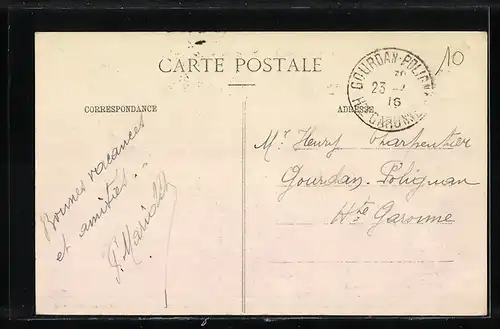 CARTE POSTALE
CORRESPONDANCE
ADRESSE
GOURDAN-POLIGNAN
23 - 7
16
Hte GARONNE
10
Bonnes vacances
et amitiés.
Mr Henry Charpentier
Gourdan-Polignan
Hte Garonne